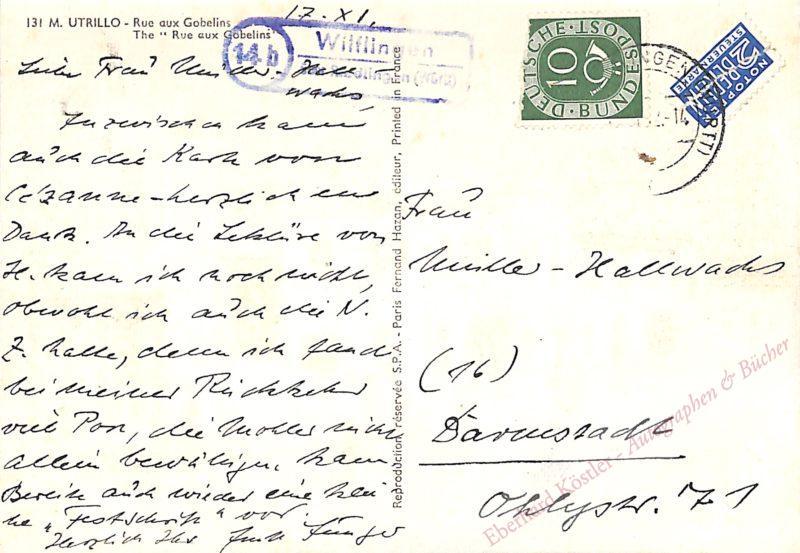 131 M. UTRILLO - Rue aux Gobelins
The "Rue aux Gobelins"
17. XI.
14b
Wilflingen
Riedlingen (Württ)
Liebe Frau Müller-Hall-
wachs,
Inzwischen kam
auch die Karte von
Cézanne - herzlichen
Dank. An die Lektüre von
H. kam ich noch nicht,
obwohl ich auch die N.
Z. halte, denn ich fand
bei meiner Rückkehr
viel Post, die Mohler nicht
allein bewältigen kann.
Bereite auch wieder eine klei
ne "Festschrift" vor.
Herzlich Ihr Ernst Jünger
Reproduction réservée S.P.A. - Paris Fernand Hazan, éditeur, Printed in France
DEUTSCHE BUNDESPOST
10
NOTOPFER
2 BERLIN
STEUERMARKE
NGEN (WÜRTT)
-14
Frau
Müller-Hallwachs
(16)
Darmstadt
Ohlystr. 71
Eberhard Köstler - Autographen & Bücher